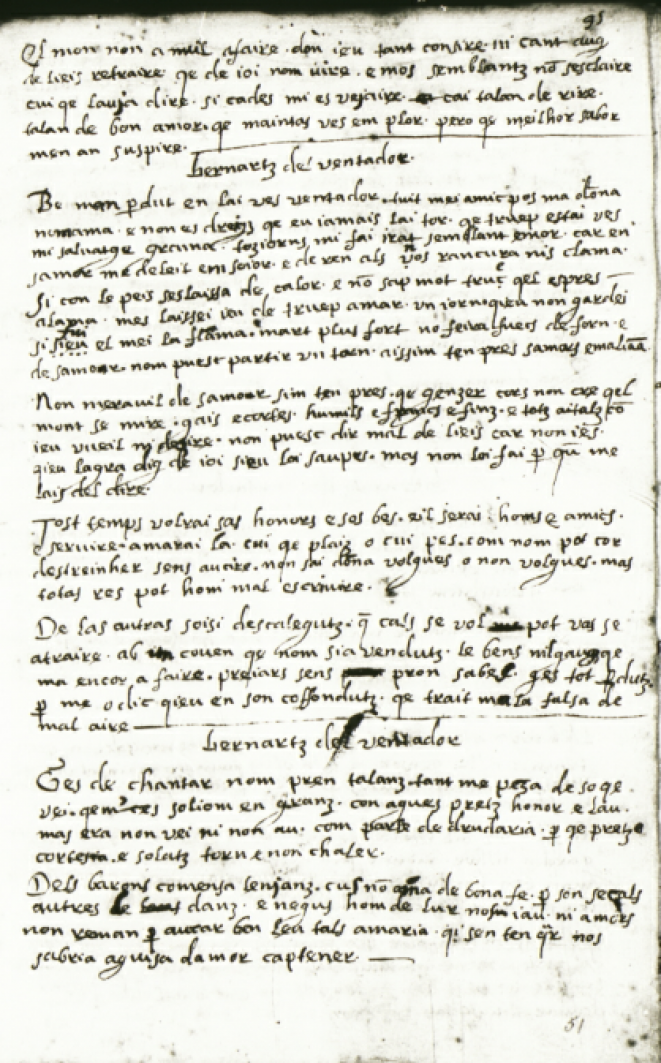 91
El mon non a nuil afaire . don ieu tant consire . ni cant aug
de lieis retraire qe de ioi nom uire . e mos semblantz nō sesclaire
cui qe lauia dire . si cades mi es vejaire . cai talan de rire .
talan de bon amor . qe maintas ves em plor . pero qe meilhor sabor
men an suspire .
bernartz de ventador .
Be man pdut en lai ves ventador . tuit mei amic pos ma dona
nomama . e non es dreigz qe eu iamais lai tor . qe truep estai ves
mi salvatge . toziorns mi fai irat semblant emor . car en
samor me deleit emi seior . e de ren als vos rancura nis clama .
Si con le peis seslaissa de calor . e nō sap mot truc qel espres
alama . mes laissei vai de truep amar . vn iorn non gardei
si sieu el mei la flama . mart plus fort no feira fuecs de forn . e
de samour . nom puesc partir vn torn . aissim ten pres samors
Non meravil de samour sim ten pres . qe genzer cors non cre qel
mont se mire . gais e cortes . humils e francs e finz . e totz aitalz cō
ieu vueil ni desire . non puesc dir mal de lieis car non ies .
qieu lagra dig de ioi sieu loi saupes . mas non loi fai p me
lais del dire .
Tost temps volrai sas honors e ses bes . eil serai homs e amics .
e servire . amarai la . cui qe plaiz o cui pes . com nom pot cor
destreinher sens aucire . non sai dōna volgues o non volgues . mas
totas res pot hom mal escrivire .
De las autras soisi descalegutz . qē cals se vol pot vas se
atraire . ab coven qe nom sia vendutz . le bens
ma encor a faire . preiars sens pron sabes . ges tot pdutz
p me o dic qieu en son cossondutz . qe trait mala falsa de
mal aire
bernartz del ventador
Ges de chantar nom pren talanz . tant me peza de so qe
vei . soliom en granz . con agues pretz honor e lau .
mas era non vei ni non au . com parle de drudaria . p qe pretz e
cortesia . e solatz torn e non chaler .
Dels barons comensa lenjanz . cus nō ama de bona fe . p son se cals
autres danz . e negus hom de lur iau . ni amors
non reman p autar ben lea tals amaria . qi sen ten nos
sabria aguisa damor captener .
51